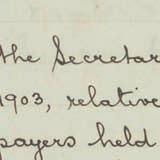 the Secretar
1903, relative
payers held